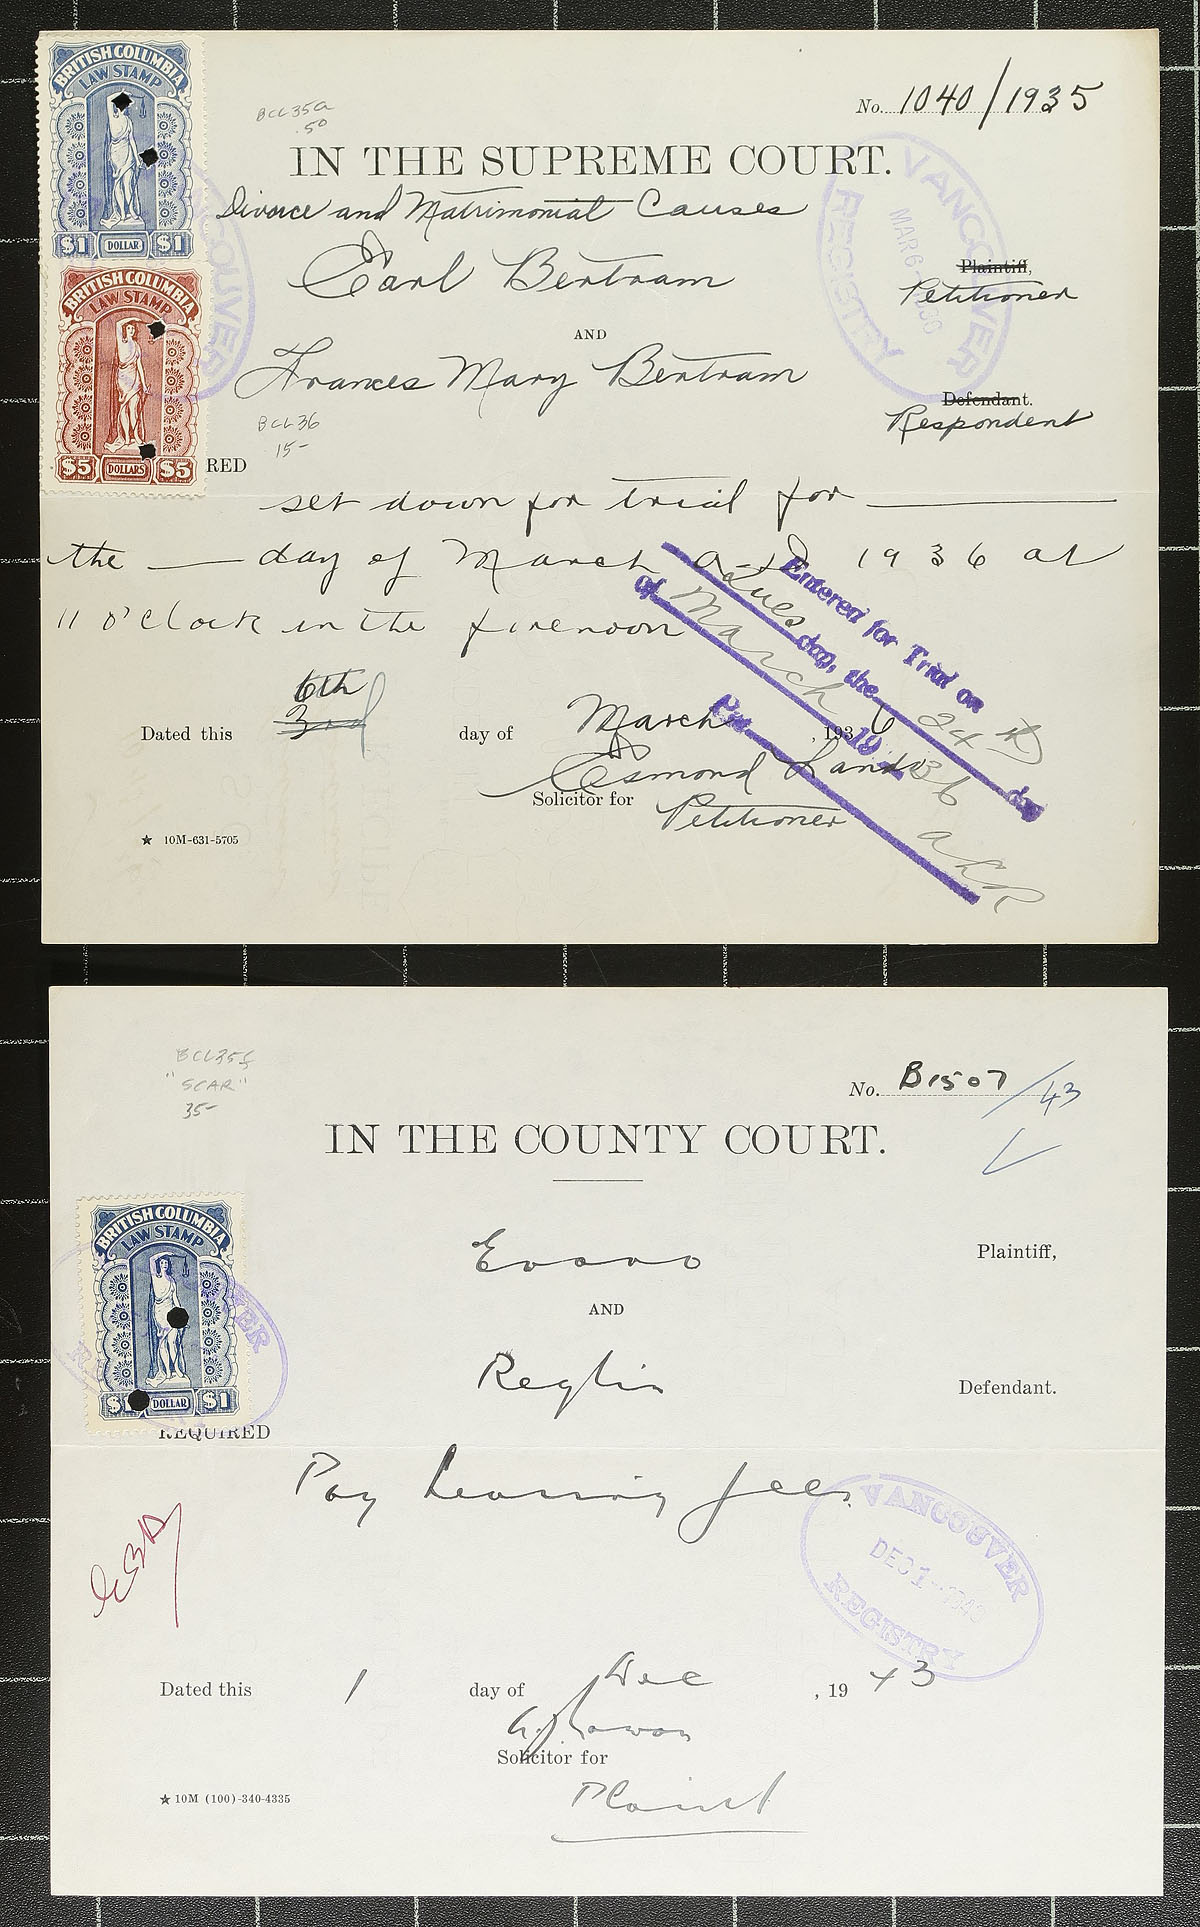 BRITISH COLUMBIA
LAW STAMP
$1 DOLLAR $1
BRITISH COLUMBIA
LAW STAMP
$5 DOLLARS $5
BCL35a
.50
No. 1040/1935
IN THE SUPREME COURT.
Divorce and Matrimonial Causes
VANCOUVER
MAR 6-
REGISTRY
Earl Bertram
Plaintiff,
Petitioner
AND
Frances Mary Bertram
Defendant.
Respondent
BCL36
15-
RED
set down for trial for
the day of March A.D. 1936 at
11 o'clock in the forenoon
Entered for Trial on
Tues day, the 24th day
of March 1936
Per
6th
3rd
Dated this day of March, 1936
Esmond Lando
Solicitor for
Petitioner
★ 10M-631-5705
BCL35f
"SCAR"
35-
No. B1507/43
IN THE COUNTY COURT.
BRITISH COLUMBIA
LAW STAMP
$1 DOLLAR $1
Evans
Plaintiff,
AND
Reglin
Defendant.
REQUIRED
Pay hearing fees.
VANCOUVER
DEC 1-1943
REGISTRY
Dated this 1 day of Dec, 1943
Solicitor for
Plaintf
★ 10M (100)-340-4335